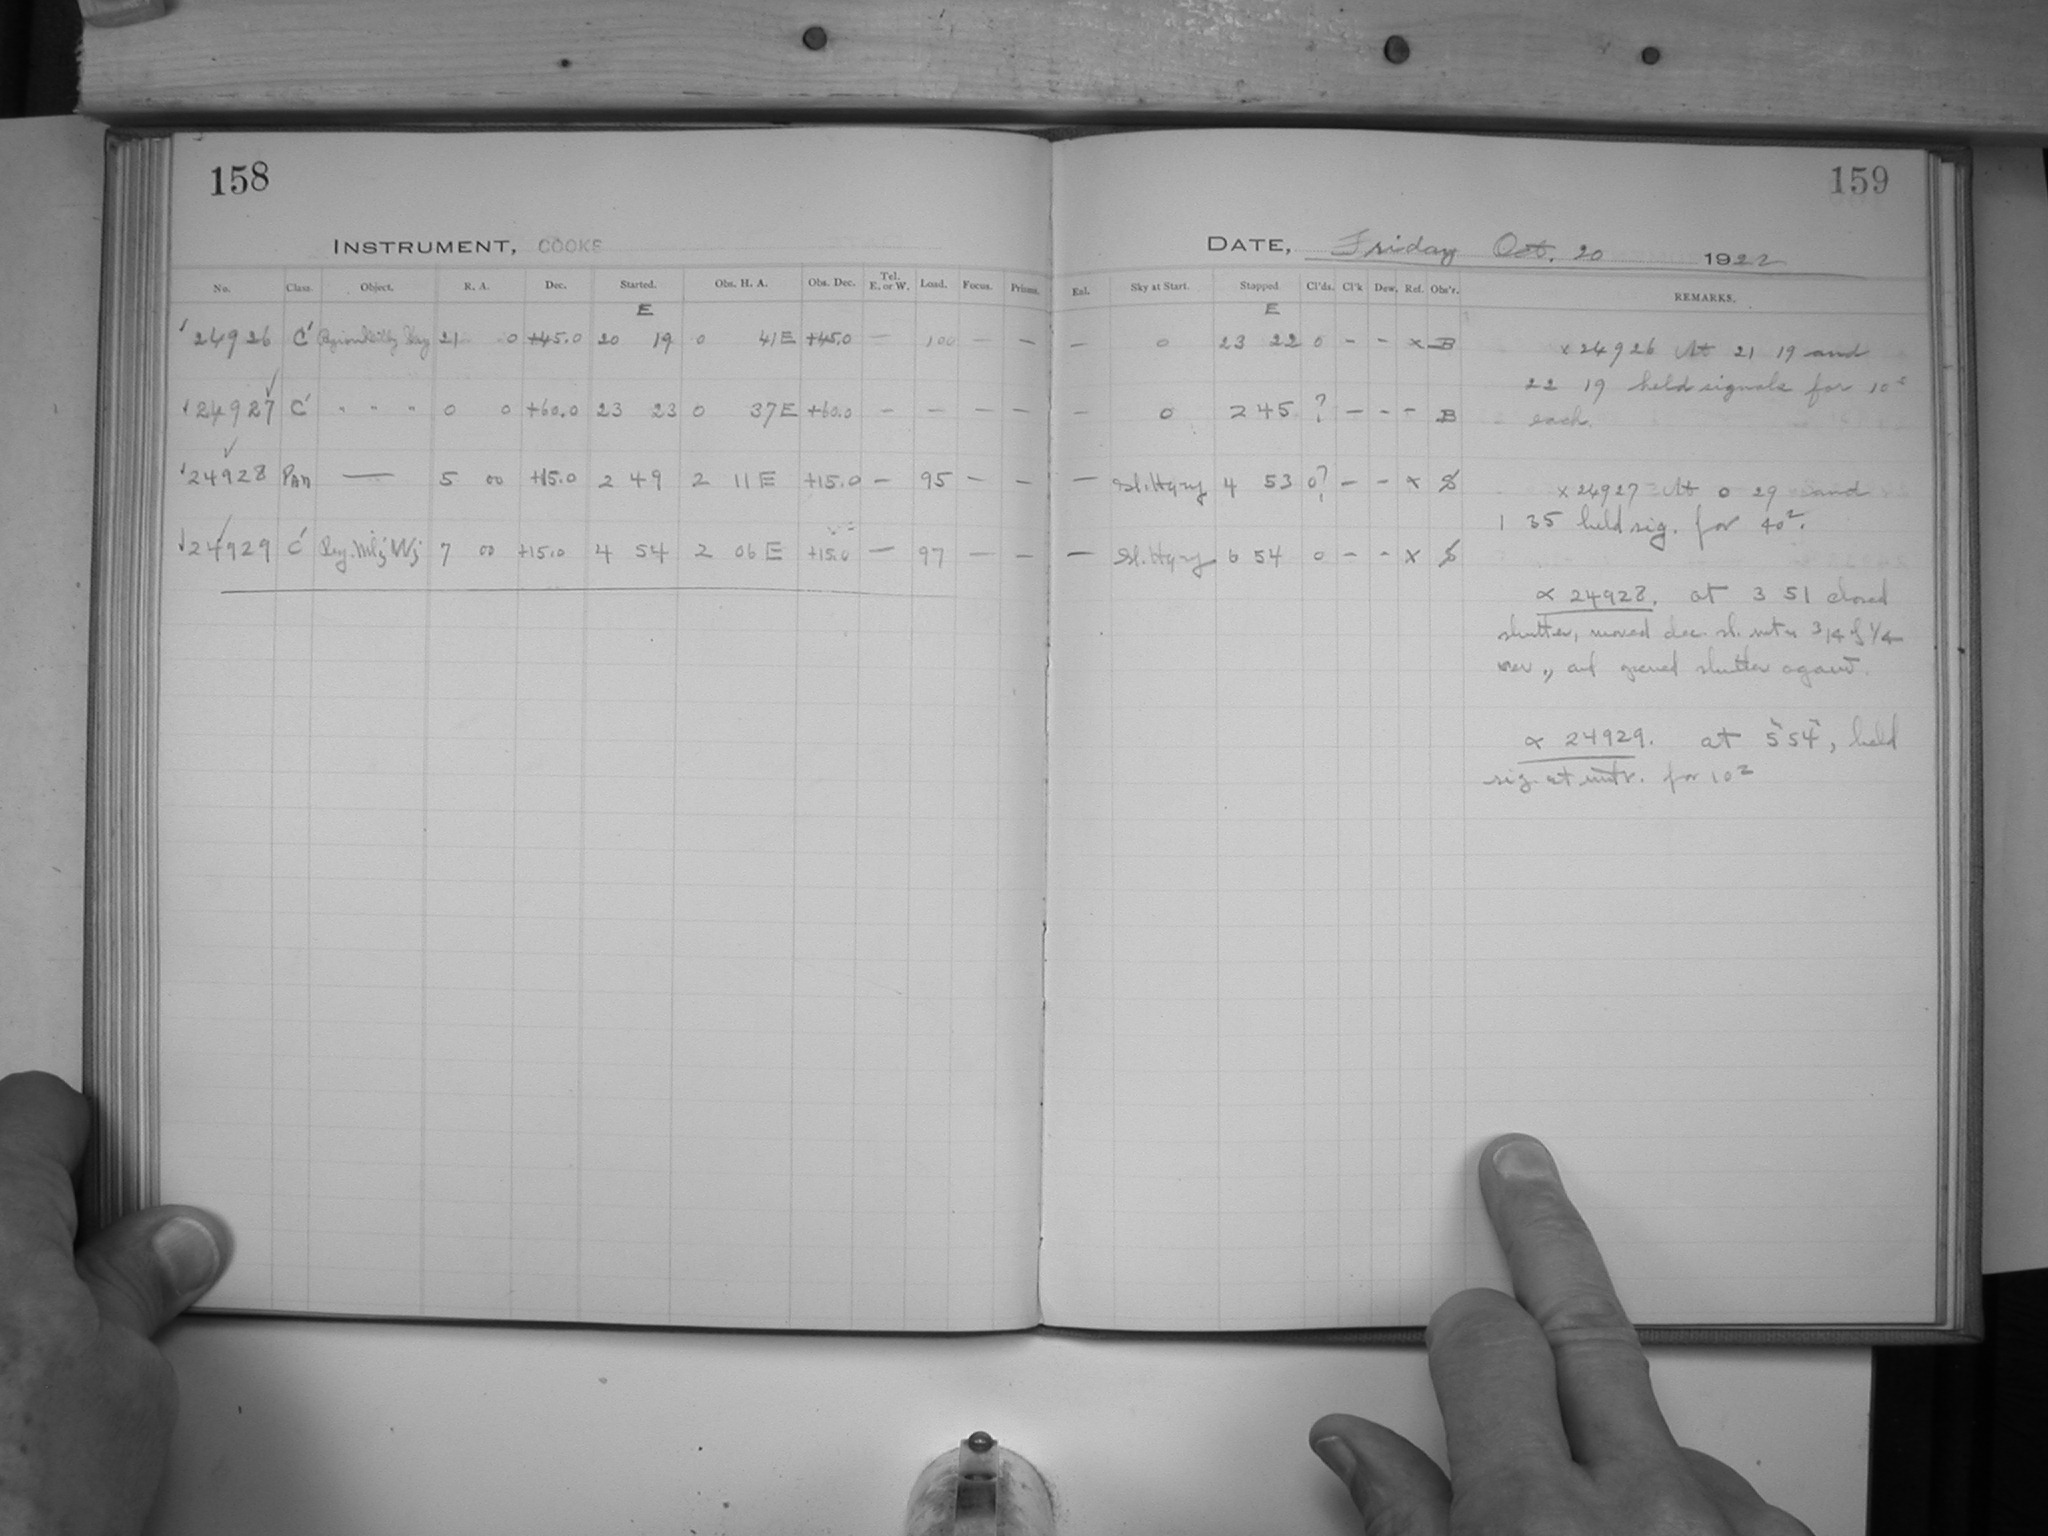 158
INSTRUMENT, COOKE
No. Class. Object. R. A. Dec. Started. Obs. H. A. Obs. Dec. Tel. E. or W. Load. Focus. Prisms.
E
24926 C' 21 0 +45.0 20 19 0 41E +45.0 — 100 — —
24927 C' " " " 0 0 +60.0 23 23 0 37E +60.0 — — — —
24928 Pan — 5 00 +15.0 2 49 2 11E +15.0 — 95 — —
24929 C' 7 00 +15.0 4 54 2 06E +15.0 — 97 — —
159
DATE, Friday Oct. 20 1922
Sky at Start. Stopped Cl'ds. Cl'k Dew. Ref. Obs'r. REMARKS.
E
— 0 23 22 0 - - x B
— 0 2 45 ? - - - B
— Sl. Hazy 4 53 0? - - x
— Sl. Hazy 6 54 0 - - x
x 24926 At 21 19 and
22 19 held signals for 10s
each.
x 24927 At 0 29 and
1 35 held sig. for 40s.
x 24928. at 3 51 closed
shutter, moved dec. sl. mtn 3/4 of 1/4
rev., and opened shutter again.
x 24929. at 5 54, held
sig. at intr. for 10s